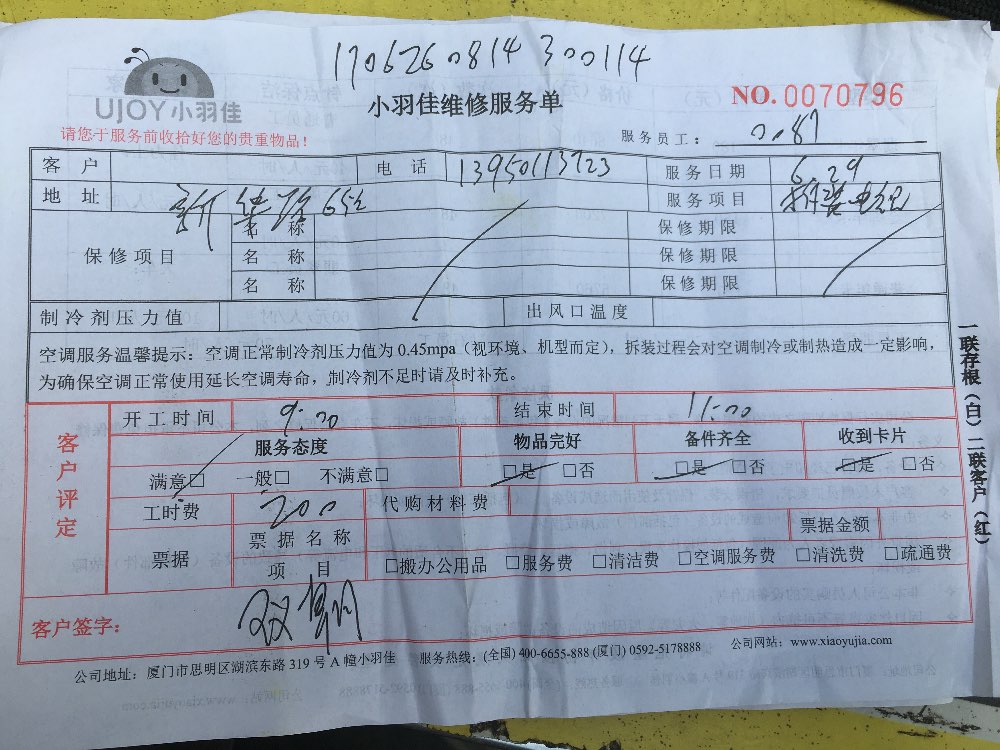 1706260814 300114
UJOY小羽佳
小羽佳维修服务单
NO. 0070796
请您于服务前收拾好您的贵重物品！
服务员工：
客 户 电 话 13950113723 服务日期 6.29
地 址 服务项目
保修项目 名 称 保修期限
名 称 保修期限
名 称 保修期限
制冷剂压力值 出风口温度
空调服务温馨提示：空调正常制冷剂压力值为 0.45mpa（视环境、机型而定），拆装过程会对空调制冷或制热造成一定影响，
为确保空调正常使用延长空调寿命，制冷剂不足时请及时补充。
客户评定
开工时间 9:00 结束时间 11:00
服务态度 物品完好 备件齐全 收到卡片
满意□ 一般□ 不满意□ □是 □否 □是 □否 □是 □否
工时费 200 代购材料费
票据 票据名称 票据金额
项 目 □搬办公用品 □服务费 □清洁费 □空调服务费 □清洗费 □疏通费
客户签字：
公司地址：厦门市思明区湖滨东路 319 号 A 幢小羽佳 服务热线：(全国) 400-6655-888 (厦门) 0592-5178888 公司网站：www.xiaoyujia.com
一联存根（白）二联客户（红）